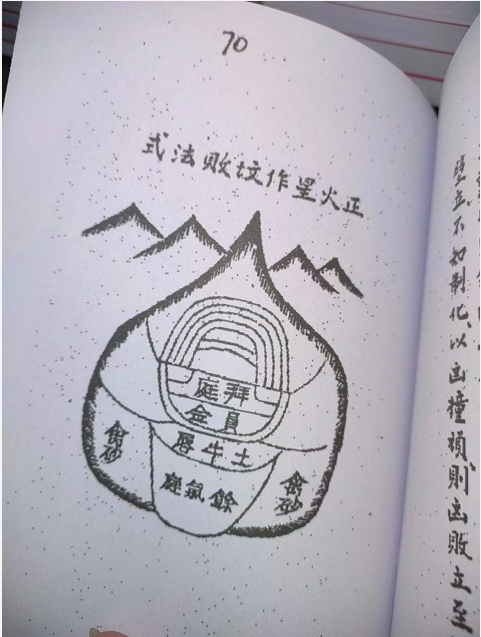 70
正火星作坟敗法式
拜庭
員金
土牛唇
餘氣庭
砂
砂
立不如制化、以凶撞禍則凶敗立至